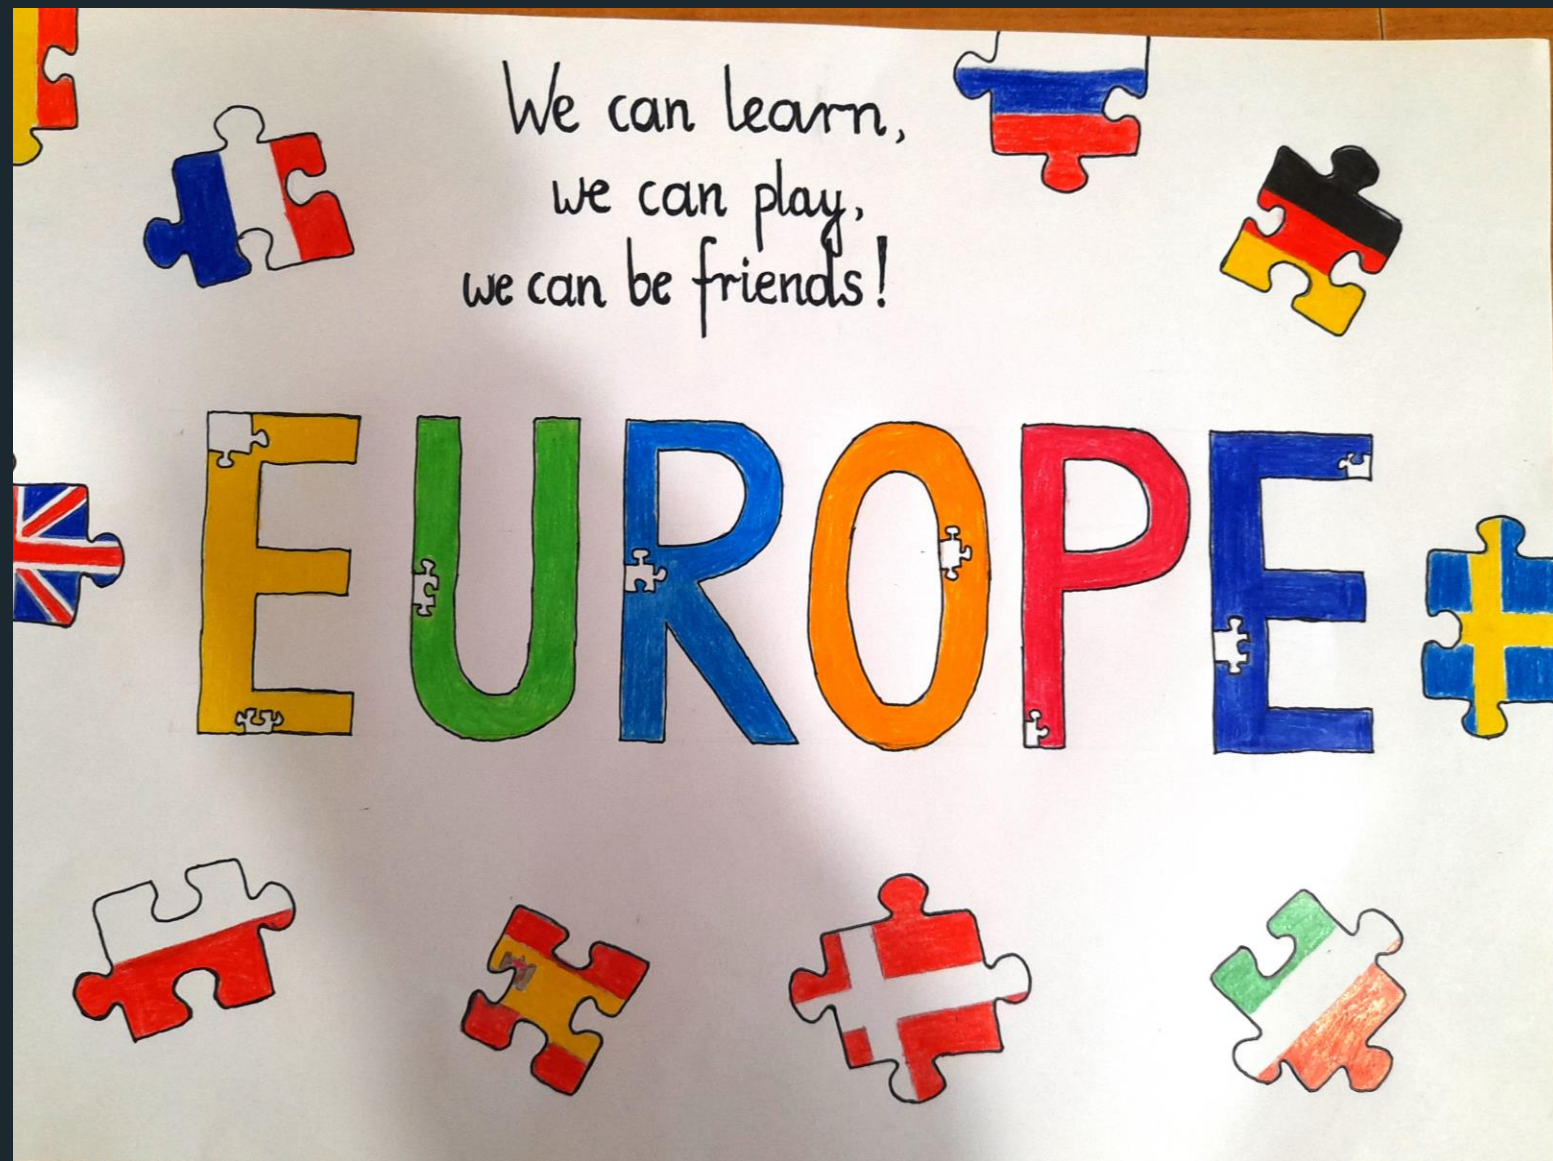 We can learn,
we can play,
we can be friends!
EUROPE